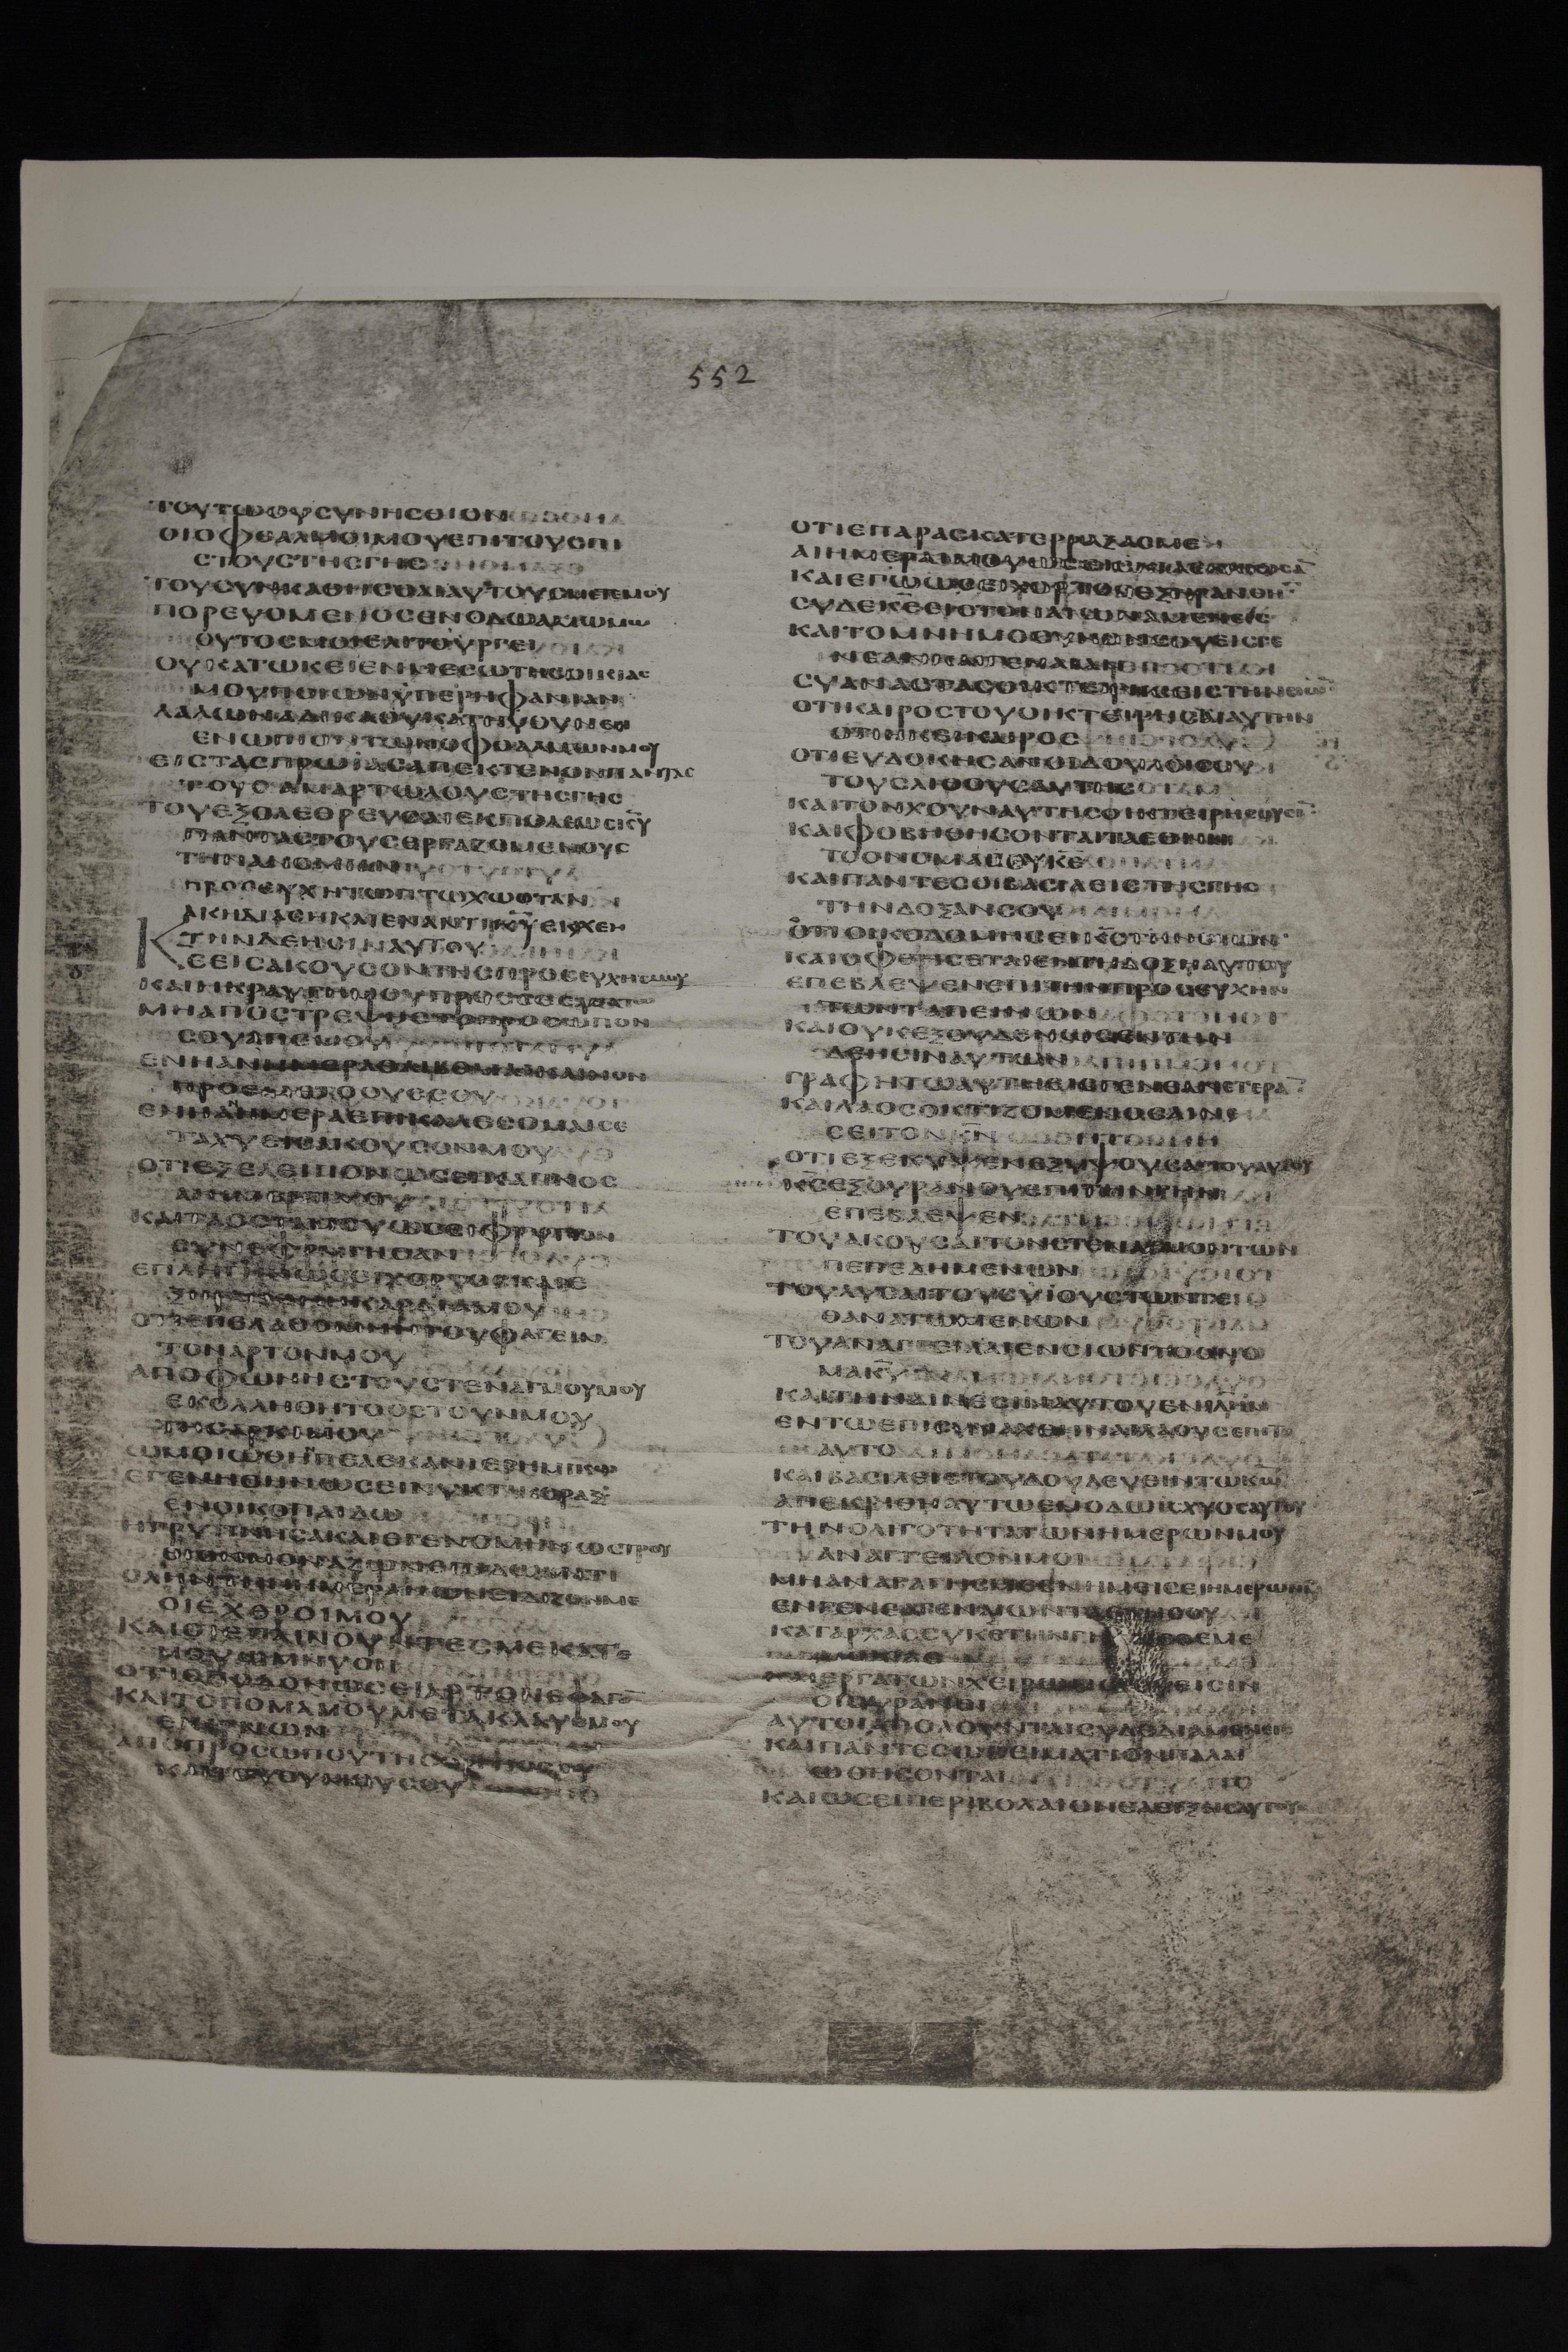 552
ΤΟΥΤΩΟΥΣΥΝΗΣΘΙΟΝ
ΟΙΟΦΘΑΛΜΟΙΜΟΥΕΠΙΤΟΥΣΠΙ
ΣΤΟΥΣΤΗΣΓΗΣ
ΤΟΥΣΥΝΚΑΘΗΣΘΑΙΑΥΤΟΥΣΜΕΤΕΜΟΥ
ΠΟΡΕΥΟΜΕΝΟΣΕΝΟΔΩΑΜΩΜΩ
ΟΥΤΟΣΜΟΙΕΛΙΤΟΥΡΓΕΙ
ΟΥΚΑΤΩΚΕΙΕΝΜΕΣΩΤΗΣΟΙΚΙΑΣ
ΜΟΥΠΟΙΩΝΥΠΕΡΗΦΑΝΙΑΝ
ΛΑΛΩΝΑΔΙΚΑΟΥΚΑΤΗΥΘΥΝΕΝ
ΕΝΩΠΙΟΝΤΩΝΟΦΘΑΛΜΩΝΜΟΥ
ΕΙΣΤΑΣΠΡΩΙΑΣΑΠΕΚΤΕΝΟΝΠΑΝΤΑΣ
ΤΟΥΣΑΜΑΡΤΩΛΟΥΣΤΗΣΓΗΣ
ΤΟΥΕΞΟΛΕΘΡΕΥΣΑΙΕΚΠΟΛΕΩΣΚΥ
ΠΑΝΤΑΣΤΟΥΣΕΡΓΑΖΟΜΕΝΟΥΣ
ΤΗΝΑΝΟΜΙΑΝ
ΠΡΟΣΕΥΧΗΤΩΠΤΩΧΩΟΤΑΝ
ΑΚΗΔΙΑΣΗΚΑΙΕΝΑΝΤΙΚΥΕΚΧΕΗ
ΤΗΝΔΕΗΣΙΝΑΥΤΟΥ
ΚΕΕΙΣΑΚΟΥΣΟΝΤΗΣΠΡΟΣΕΥΧΗΣΜΟΥ
ΚΑΙΗΚΡΑΥΓΗΜΟΥΠΡΟΣΣΕ
ΜΗΑΠΟΣΤΡΕΨΗΣΤΟΠΡΟΣΩΠΟΝ
ΣΟΥΑΠΕΜΟΥ
ΕΝΗΑΝΗΜΕΡΑΘΛΙΒΩΜΑΙΚΛΙΝΟΝ
ΠΡΟΣΜΕΤΟΟΥΣΣΟΥ
ΕΝΗΑΝΗΜΕΡΑΕΠΙΚΑΛΕΣΩΜΑΙΣΕ
ΤΑΧΥΕΙΣΑΚΟΥΣΟΝΜΟΥ
ΟΤΙΕΞΕΛΕΙΠΟΝΩΣΕΙΚΑΠΝΟΣ
ΑΙΗΜΕΡΑΙΜΟΥ
ΚΑΙΤΑΟΣΤΑΜΟΥΩΣΕΙΦΡΥΓΙΟΝ
ΣΥΝΕΦΡΥΓΗΣΑΝ
ΕΠΛΗΓΗΩΣΕΙΧΟΡΤΟΣΚΑΙΕ
ΞΗΡΑΝΘΗΗΚΑΡΔΙΑΜΟΥ
ΟΤΙΕΠΕΛΑΘΟΜΗΝΤΟΥΦΑΓΕΙΝ
ΤΟΝΑΡΤΟΝΜΟΥ
ΑΠΟΦΩΝΗΣΤΟΥΣΤΕΝΑΓΜΟΥΜΟΥ
ΕΚΟΛΛΗΘΗΤΟΟΣΤΟΥΝΜΟΥ
ΤΗΣΑΡΚΙΜΟΥ
ΩΜΟΙΩΘΗΝΠΕΛΕΚΑΝΙΕΡΗΜΙΚΩ
ΕΓΕΝΗΘΗΝΩΣΕΙΝΥΚΤΙΚΟΡΑΞ
ΕΝΟΙΚΟΠΑΙΔΩ
ΗΓΡΥΠΝΗΣΑΚΑΙΕΓΕΝΟΜΗΝΩΣΤΡΟΥ
ΘΙΟΝΜΟΝΑΖΩΝΕΠΙΔΩΜΑΤΙ
ΟΛΗΝΤΗΝΗΜΕΡΑΝΩΝΕΙΔΙΖΟΝΜΕ
ΟΙΕΧΘΡΟΙΜΟΥ
ΚΑΙΟΙΕΠΑΙΝΟΥΝΤΕΣΜΕΚΑΤΕ
ΜΟΥΩΜΝΥΟΝ
ΟΤΙΣΠΟΔΟΝΩΣΕΙΑΡΤΟΝΕΦΑΓΟ
ΚΑΙΤΟΠΟΜΑΜΟΥΜΕΤΑΚΛΑΥΘΜΟΥ
ΕΚΙΡΝΩΝ
ΑΠΟΠΡΟΣΩΠΟΥΤΗΣΟΡΓΗΣΣΟΥ
ΚΑΙΤΟΥΘΥΜΟΥΣΟΥ
ΟΤΙΕΠΑΡΑΣΚΑΤΕΡΡΑΞΑΣΜΕ
ΑΙΗΜΕΡΑΙΜΟΥΩΣΕΙΣΚΙΑΕΚΛΙΘΗΣΑ
ΚΑΙΕΓΩΩΣΕΙΧΟΡΤΟΣΕΞΗΡΑΝΘΗ
ΣΥΔΕΚΕΕΙΣΤΟΝΑΙΩΝΑΜΕΝΕΙΣ
ΚΑΙΤΟΜΝΗΜΟΣΥΝΟΝΣΟΥΕΙΣΓΕ
ΝΕΑΝΚΑΙΓΕΝΕΑΝ
ΣΥΑΝΑΣΤΑΣΟΙΚΤΕΙΡΗΣΕΙΣΤΗΝΣΙΩ
ΟΤΙΚΑΙΡΟΣΤΟΥΟΙΚΤΕΙΡΗΣΑΙΑΥΤΗΝ
ΟΤΙΗΚΕΙΚΑΙΡΟΣ
ΟΤΙΕΥΔΟΚΗΣΑΝΟΙΔΟΥΛΟΙΣΟΥ
ΤΟΥΣΛΙΘΟΥΣΑΥΤΗΣ
ΚΑΙΤΟΝΧΟΥΝΑΥΤΗΣΟΙΚΤΕΙΡΗΣΟΥΣΙ
ΚΑΙΦΟΒΗΘΗΣΟΝΤΑΙΤΑΕΘΝΗ
ΤΟΟΝΟΜΑΣΟΥΚΕ
ΚΑΙΠΑΝΤΕΣΟΙΒΑΣΙΛΕΙΣΤΗΣΓΗΣ
ΤΗΝΔΟΞΑΝΣΟΥ
ΟΤΙΟΙΚΟΔΟΜΗΣΕΙΚΣΤΗΝΣΙΩΝ
ΚΑΙΟΦΘΗΣΕΤΑΙΕΝΤΗΔΟΞΗΑΥΤΟΥ
ΕΠΕΒΛΕΨΕΝΕΠΙΤΗΝΠΡΟΣΕΥΧΗΝ
ΤΩΝΤΑΠΕΙΝΩΝ
ΚΑΙΟΥΚΕΞΟΥΔΕΝΩΣΕΝΤΗΝ
ΔΕΗΣΙΝΑΥΤΩΝ
ΓΡΑΦΗΤΩΑΥΤΗΕΙΣΓΕΝΕΑΝΕΤΕΡΑ
ΚΑΙΛΑΟΣΟΚΤΙΖΟΜΕΝΟΣΑΙΝΕ
ΣΕΙΤΟΝΚΝ
ΟΤΙΕΞΕΚΥΨΕΝΕΞΥΨΟΥΣΑΓΙΟΥΑΥΤΟΥ
ΚΣΕΞΟΥΡΑΝΟΥΕΠΙΤΗΝΓΗΝ
ΕΠΕΒΛΕΨΕΝ
ΤΟΥΑΚΟΥΣΑΙΤΟΝΣΤΕΝΑΓΜΟΝΤΩΝ
ΠΕΠΕΔΗΜΕΝΩΝ
ΤΟΥΛΥΣΑΙΤΟΥΣΥΙΟΥΣΤΩΝΤΕ
ΘΑΝΑΤΩΜΕΝΩΝ
ΤΟΥΑΝΑΓΓΕΙΛΑΙΕΝΣΙΩΝΤΟΟΝΟ
ΜΑΚΥ
ΚΑΙΤΗΝΑΙΝΕΣΙΝΑΥΤΟΥΕΝΙΛΗΜ
ΕΝΤΩΕΠΙΣΥΝΑΧΘΗΝΑΙΛΑΟΥΣΕΠΙΤΟ
ΑΥΤΟ
ΚΑΙΒΑΣΙΛΕΙΣΤΟΥΔΟΥΛΕΥΕΙΝΤΩΚΩ
ΑΠΕΚΡΙΘΗΑΥΤΩΕΝΟΔΩΙΣΧΥΟΣΑΥΤΟΥ
ΤΗΝΟΛΙΓΟΤΗΤΑΤΩΝΗΜΕΡΩΝΜΟΥ
ΑΝΑΓΓΕΙΛΟΝΜΟΙ
ΜΗΑΝΑΓΑΓΗΣΜΕΕΝΗΜΙΣΕΙΗΜΕΡΩΝΜΟΥ
ΕΝΓΕΝΕΑΓΕΝΕΩΝΤΑΕΤΗΣΟΥ
ΚΑΤΑΡΧΑΣΣΥΚΕΤΗΝΓΗΝΕΘΕΜΕ
ΕΡΓΑΤΩΝΧΕΙΡΩΝΣΟΥΕΙΣΙΝ
ΟΙΟΥΡΑΝΟΙ
ΑΥΤΟΙΑΠΟΛΟΥΝΤΑΙΣΥΔΕΔΙΑΜΕΝΕΙΣ
ΚΑΙΠΑΝΤΕΣΩΣΕΙΜΑΤΙΟΝΠΑΛΑΙ
ΩΘΗΣΟΝΤΑΙ
ΚΑΙΩΣΕΙΠΕΡΙΒΟΛΑΙΟΝΕΛΕΙΞΕΙΣΑΥΤΟΥΣ